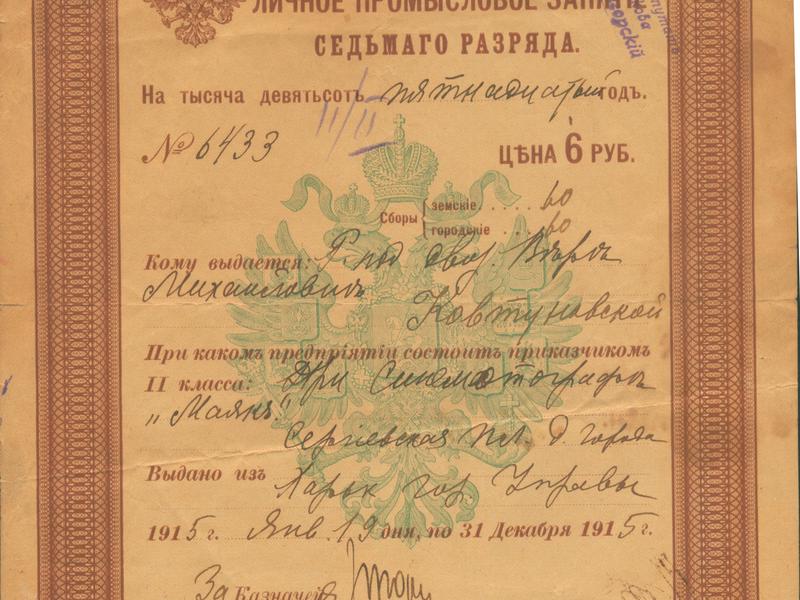 ЛИЧНОЕ ПРОМЫСЛОВОЕ
СЕДЬМАГО РАЗРЯДА.
На тысяча девятьсотъ пятнадцатый годъ.
II/II
№ 6433
ЦѢНА 6 РУБ.
Сборы земскіе 60
городскіе 60
Кому выдается:
Михайловнѣ
Ковтуновской
При какомъ предпріятіи состоитъ приказчикомъ
II класса: При Синематографѣ
"Маякъ"
Сергіевская пл. д. города
Выдано изъ Харьк гор. Управы
1915 г. Янв. 19 дня, по 31 Декабря 1915 г.
За Казначей